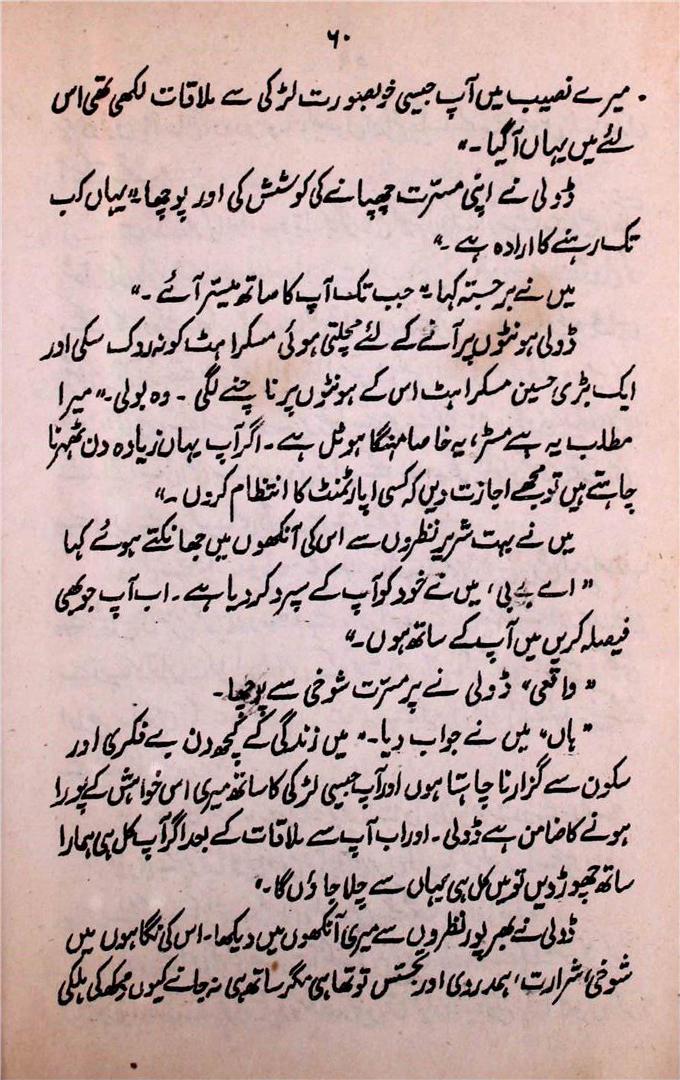 ۶۰
۔ میرے نصیب میں آپ جیسی خوبصورت لڑکی سے ملاقات لکھی تھی اس
لئے میں یہاں آگیا۔"
ڈولی نے اپنی مسرّت چھپانے کی کوشش کی اور پوچھا "یہاں کب
تک رہنے کا ارادہ ہے۔"
میں نے برجستہ کہا " جب تک آپ کا ساتھ میسّر آئے۔"
ڈولی ہونٹوں پر آنے کے لئے مچلتی ہوئی مسکراہٹ کو نہ روک سکی اور
ایک بڑی حسین مسکراہٹ اس کے ہونٹوں پر ناچنے لگی۔ وہ بولی۔" میرا
مطلب یہ ہے مسٹر، یہ خاصا مہنگا ہوٹل ہے۔ اگر آپ یہاں زیادہ دن ٹھہرنا
چاہتے ہیں تو مجھے اجازت دیں کہ کسی اپارٹمنٹ کا انتظام کروں۔"
میں نے بہت شریر نظروں سے اس کی آنکھوں میں جھانکتے ہوئے کہا
" اے بے بی، میں نے خود کو آپ کے سپرد کر دیا ہے۔ اب آپ جو بھی
فیصلہ کریں میں آپ کے ساتھ ہوں۔"
" واقعی" ڈولی نے پر مسرّت شوخی سے پوچھا۔
" ہاں" میں نے جواب دیا۔" میں زندگی کے کچھ دن بے فکری اور
سکون سے گزارنا چاہتا ہوں اور آپ جیسی لڑکی کا ساتھ میری اس خواہش کے پورا
ہونے کا ضامن ہے ڈولی۔ اور اب آپ سے ملاقات کے بعد اگر آپ کل ہی ہمارا
ساتھ چھوڑ دیں تو میں کل ہی یہاں سے چلا جاؤں گا۔"
ڈولی نے بھرپور نظروں سے میری آنکھوں میں دیکھا۔ اس کی نگاہوں میں
شوخی، شرارت، ہمدردی اور تجسّس تو تھا ہی مگر ساتھ ہی نہ جانے کیوں دکھ کی ہلکی